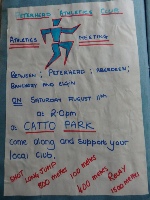 PETERHEAD ATHLETICS CLUB
ATHLETICS MEETING
BETWEEN; PETERHEAD; ABERDEEN;
BANCHORY AND ELGIN
ON SATURDAY AUGUST 11th
at 2.0pm
at CATTO PARK
come along and support your
local club.
SHOT LONG JUMP 100 METRES RELAY
800 METRES 400 METRES 1500 METRES